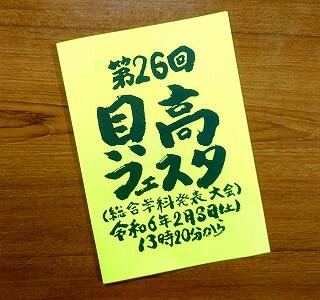 第26回
貝高
フェスタ
(総合学科発表大会)
令和6年2月3日(土)
13時20分から